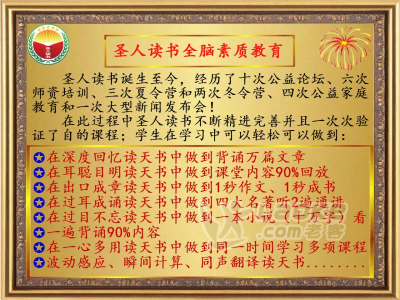 圣人读书全脑素质教育
圣人读书诞生至今，经历了十次公益论坛、六次
师资培训、三次夏令营和两次冬令营、四次公益家庭
教育和一次大型新闻发布会！
在此过程中圣人读书不断精进完善并且一次次验
证了自的课程；学生在学习中可以轻松可以做到：
在深度回忆读天书中做到背诵万篇文章
在耳聪目明读天书中做到课堂内容90%回放
在出口成章读天书中做到1秒作文、1秒成书
在过耳成诵读天书中做到四大名著听2遍通讲
在过目不忘读天书中做到一本小说（千万字）看
一遍背诵90%内容
在一心多用读天书中做到同一时间学习多项课程
波动感应、瞬间计算、同声翻译读天书........